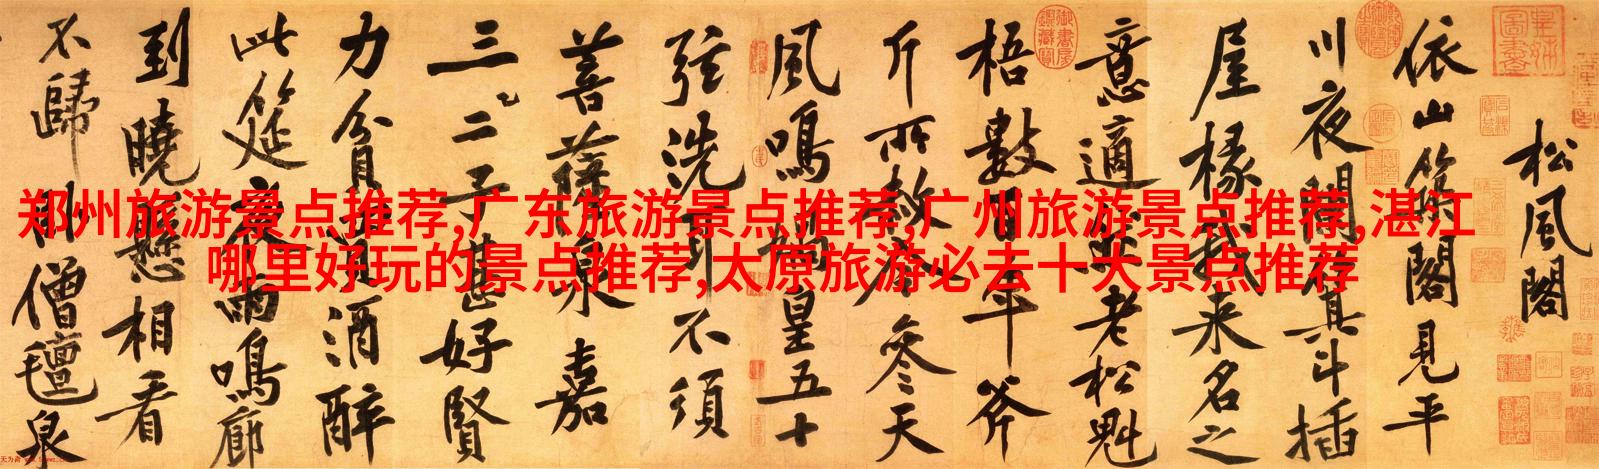 郑州旅游景点推荐,广东旅游景点推荐,广州旅游景点推荐,湛江
哪里好玩的景点推荐,太原旅游必去十大景点推荐
松風閣
依山築閣見平
川夜闌箕斗插
屋椽我来名之
意適然老松魁
梧數百年斧
斤所赦今參天
風鳴媧皇五十
弦洗耳不須
菩薩泉嘉
三二子甚好賢
力貧買酒醉
此筵夜雨鳴廊
到曉懸相看
不歸臥僧氈泉
皇姊圖書
御書房鑑藏寶